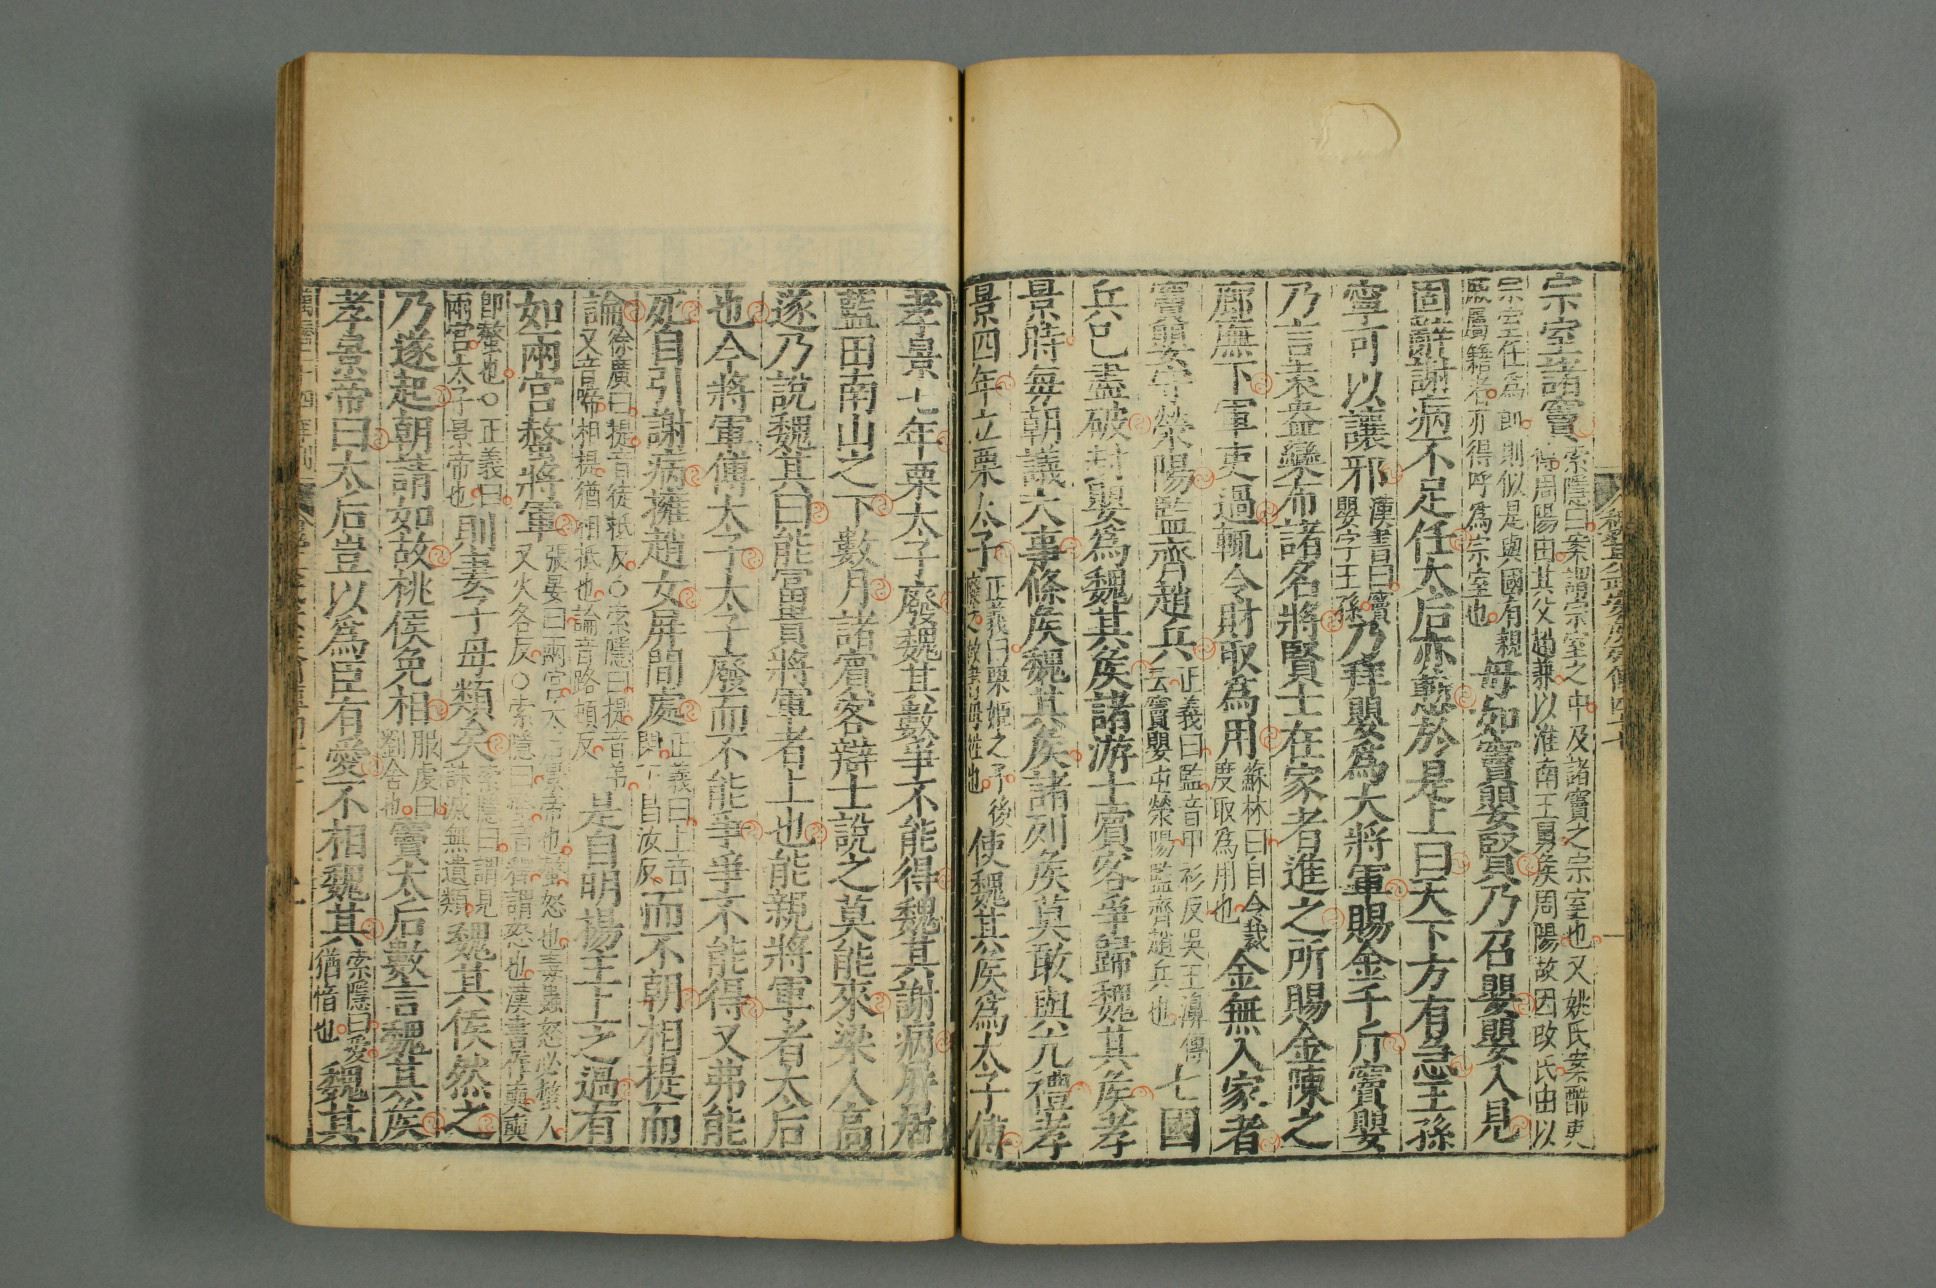 宗室諸竇索隱曰案謂宗室之中及諸竇之宗室也又姚氏案酷吏傳周陽由其父趙兼以淮南王舅侯周陽故因改氏由以
宗室任爲郎則似是與國有親戚屬籍者亦得呼爲宗室也毋如竇嬰賢乃召嬰嬰入見
固辭謝病不足任太后亦慙於是上曰天下方有急王孫
寧可以讓邪漢書曰竇嬰字王孫乃拜嬰爲大將軍賜金千斤竇嬰
乃言袁盎欒布諸名將賢士在家者進之所賜金陳之
廊廡下軍吏過輒令財取爲用蘇林曰自令裁度取爲用也金無入家者
竇嬰守滎陽監齊趙兵正義曰監音甲衫反吳王濞傳云竇嬰屯滎陽監齊趙兵也七國
兵已盡破封嬰爲魏其侯諸游士賓客爭歸魏其侯孝
景時每朝議大事條侯魏其侯諸列侯莫敢與亢禮孝
景四年立栗太子正義曰栗姬之子後廢也使魏其侯爲太子傅
孝景七年栗太子廢魏其數爭不能得魏其謝病屏居
藍田南山之下數月諸賓客辯士說之莫能來梁人高
遂乃說魏其曰能富貴將軍者上也能親將軍者太后
也今將軍傅太子太子廢而不能爭爭不能得又弗能
死自引謝病擁趙女屏閒處正義曰上音閑下昌汝反而不朝相提而
論徐廣曰提音徒抵反○索隱曰提音弟又音啼相提猶相抵也論音路頓反是自明揚主上之過有
如兩宮螫將軍張晏曰兩宮太后景帝也螫怒也毒蟲怒必螫人又火各反○索隱曰螫音釋謂怒也漢書作奭奭
即螫也○正義曰兩宮太子景帝也則妻子母類矣索隱曰謂見誅滅無遺類魏其侯然之
乃遂起朝請如故桃侯免相服虔曰劉舍也竇太后數言魏其侯
孝景帝曰太后豈以爲臣有愛不相魏其索隱曰愛猶惜也魏其